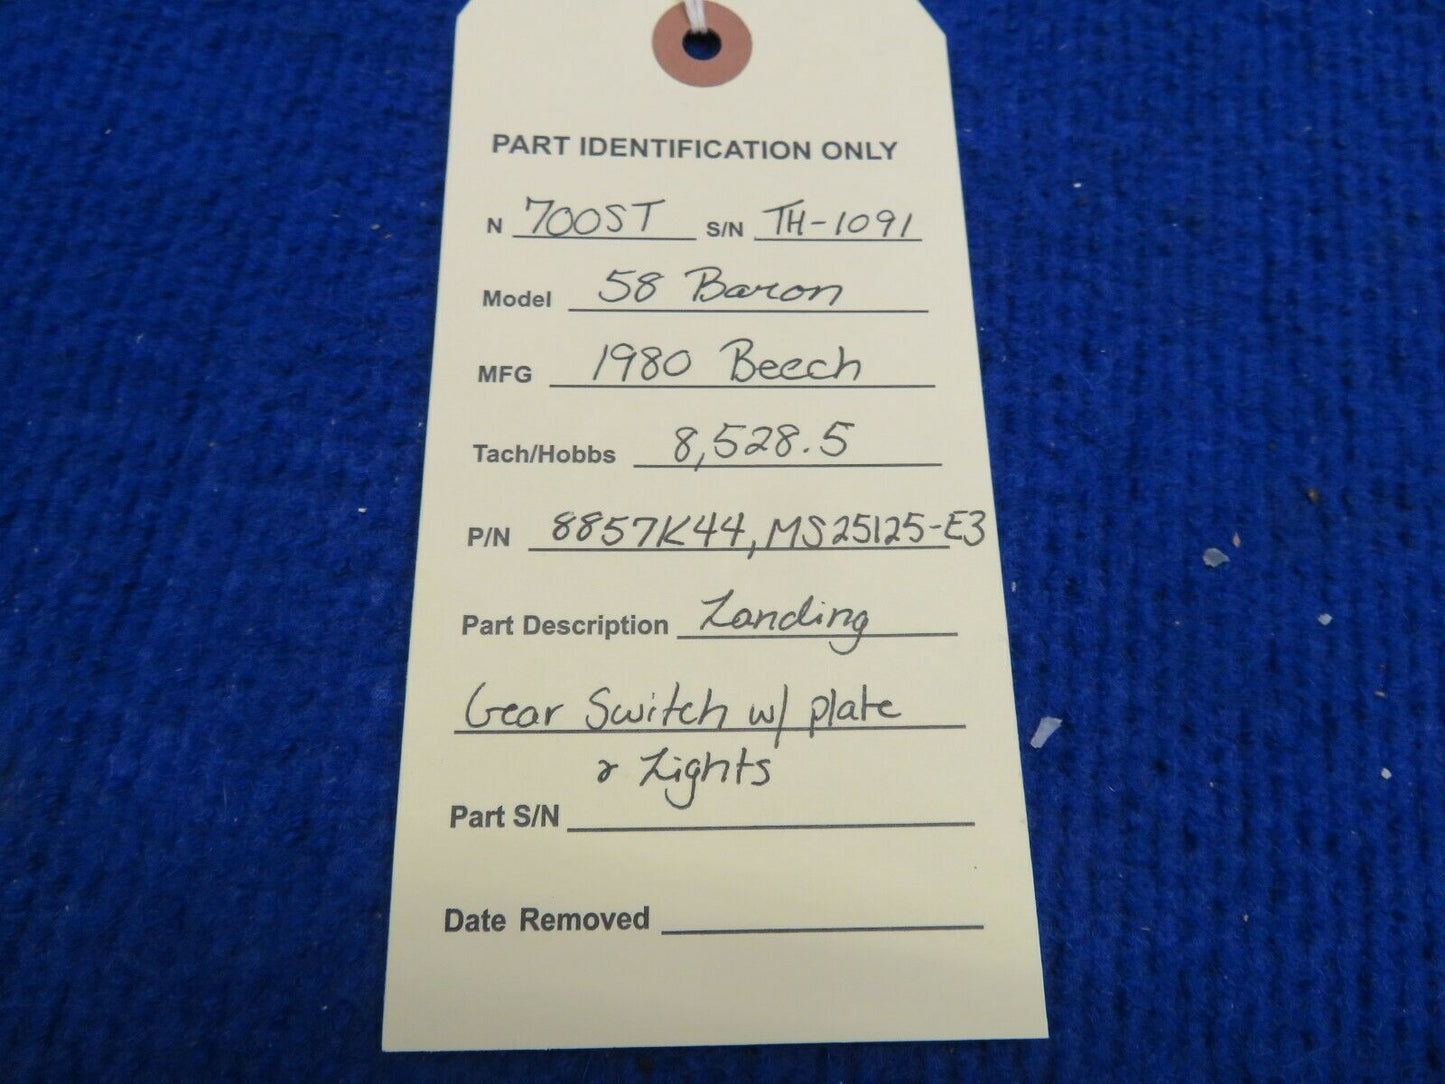 PART IDENTIFICATION ONLY
N 700ST S/N TH-1091
Model 58 Baron
MFG 1980 Beech
Tach/Hobbs 8,528.5
P/N 8857K44, MS25125-E3
Part Description Landing
Gear Switch w/ plate
& Lights
Part S/N
Date Removed